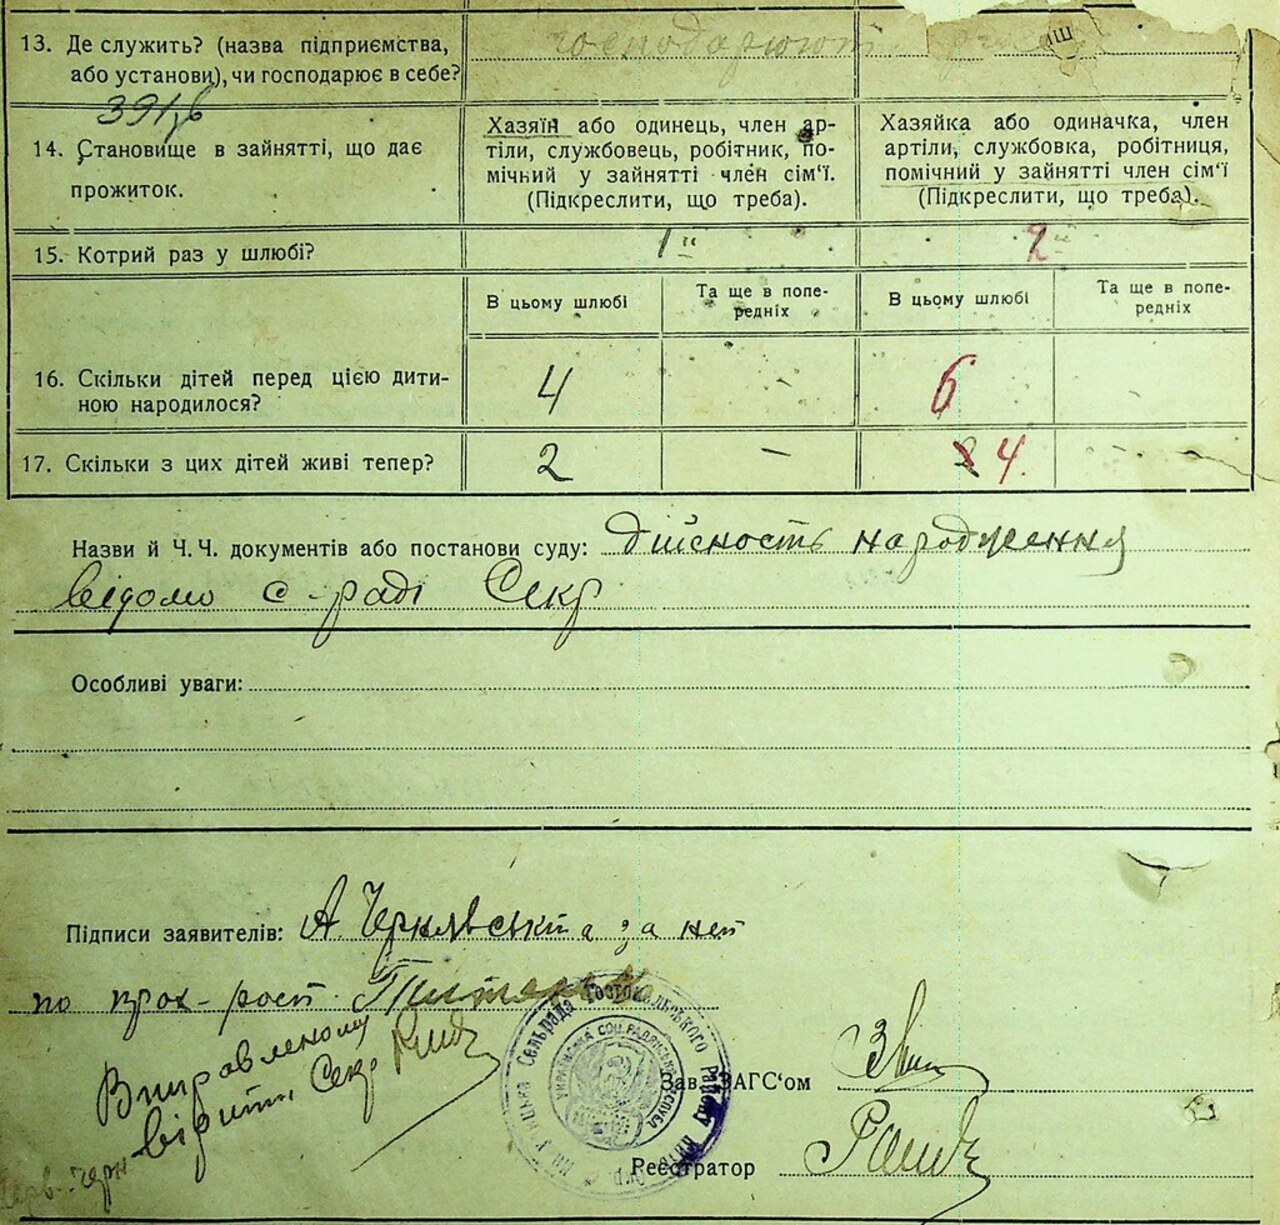 13. Де служить? (назва підприємства,
або установи), чи господарює в себе?
господарюют
391,в
14. Становище в зайнятті, що дає
прожиток.
Хазяїн або одинець, член ар-
тіли, службовець, робітник, по-
мічний у зайнятті член сім‘ї.
(Підкреслити, що треба).
Хазяйка або одиначка, член
артіли, службовка, робітниця,
помічний у зайнятті член сім‘ї
(Підкреслити, що треба).
15. Котрий раз у шлюбі?
1й
2й
В цьому шлюбі
Та ще в попе-
редніх
В цьому шлюбі
Та ще в попе-
редніх
16. Скільки дітей перед цією дити-
ною народилося?
4
-
6
-
17. Скільки з цих дітей живі тепер?
2
-
4.
-
Назви й Ч.Ч. документів або постанови суду: дійсность народження
відомо с-раді Секр
Особливі уваги:
Підписи заявителів: А. Чернявська за неї
по прох-рост.
Виправленому
вірити. Секр
Сельрада Гостомельського Району
УКРАЇНСЬКА СОЦ. РАДЯНСЬКА РЕСПУБЛ
Зав. ЗАГС‘ом
Реєстратор